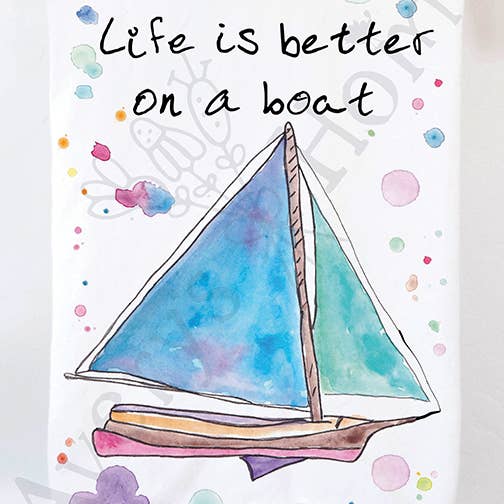 Life is better
on a boat